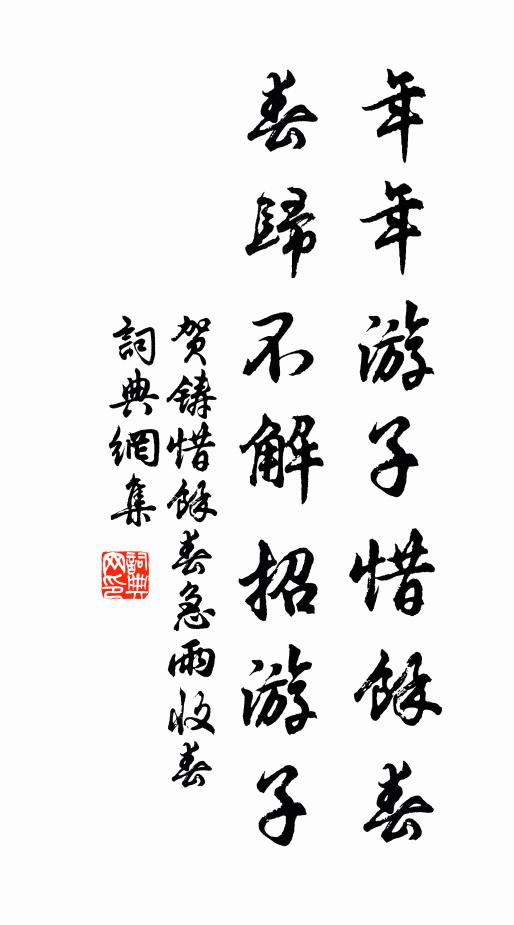 年年游子惜餘春
春歸不解招游子
贺鑄惜餘春急雨收春
詞典網集
詞典網印